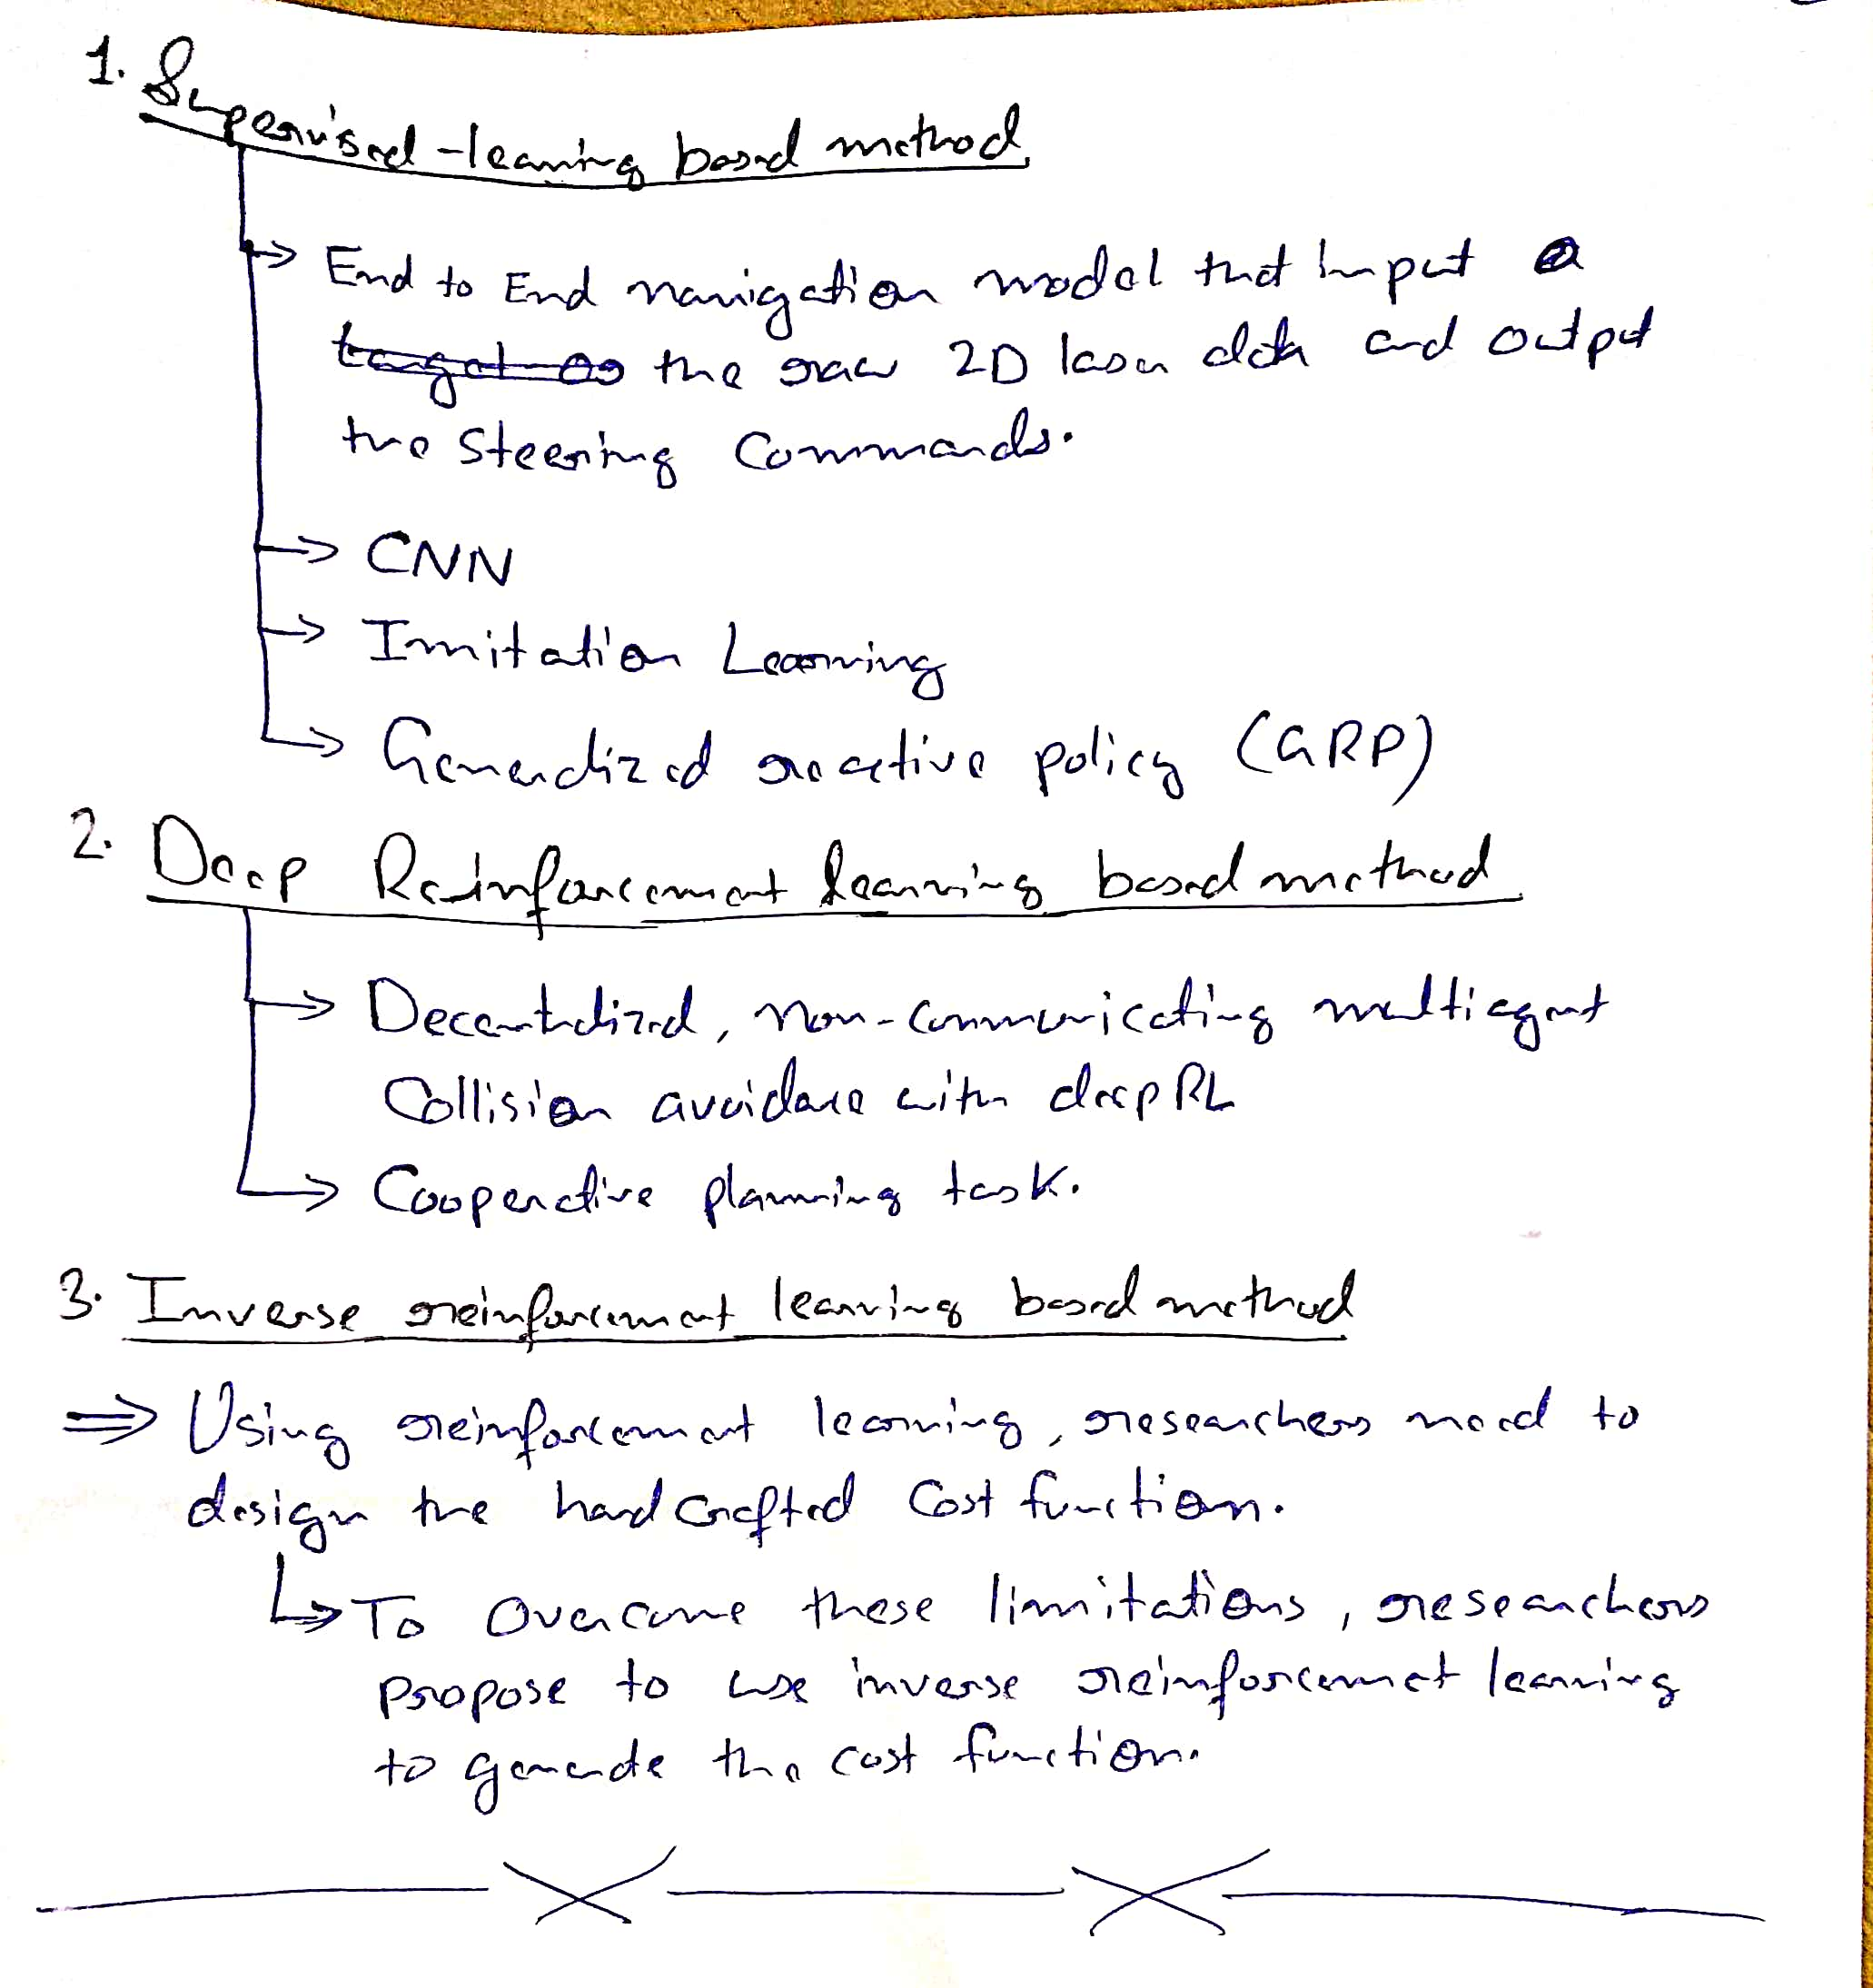 1. Supervised-learning based method
End to End navigation model that input
target as the raw 2D laser data and output
the steering commands.
CNN
Imitation Learning
Generalized reactive policy (GRP)
2. Deep Reinforcement learning based method
Decentralized, non-communicating multiagent
Collision avoidance with deep RL
Cooperative planning task.
3. Inverse reinforcement learning based method
⇒ Using reinforcement learning, researchers need to
design the hand crafted cost function.
To overcome these limitations, researchers
propose to use inverse reinforcement learning
to generate the cost function.